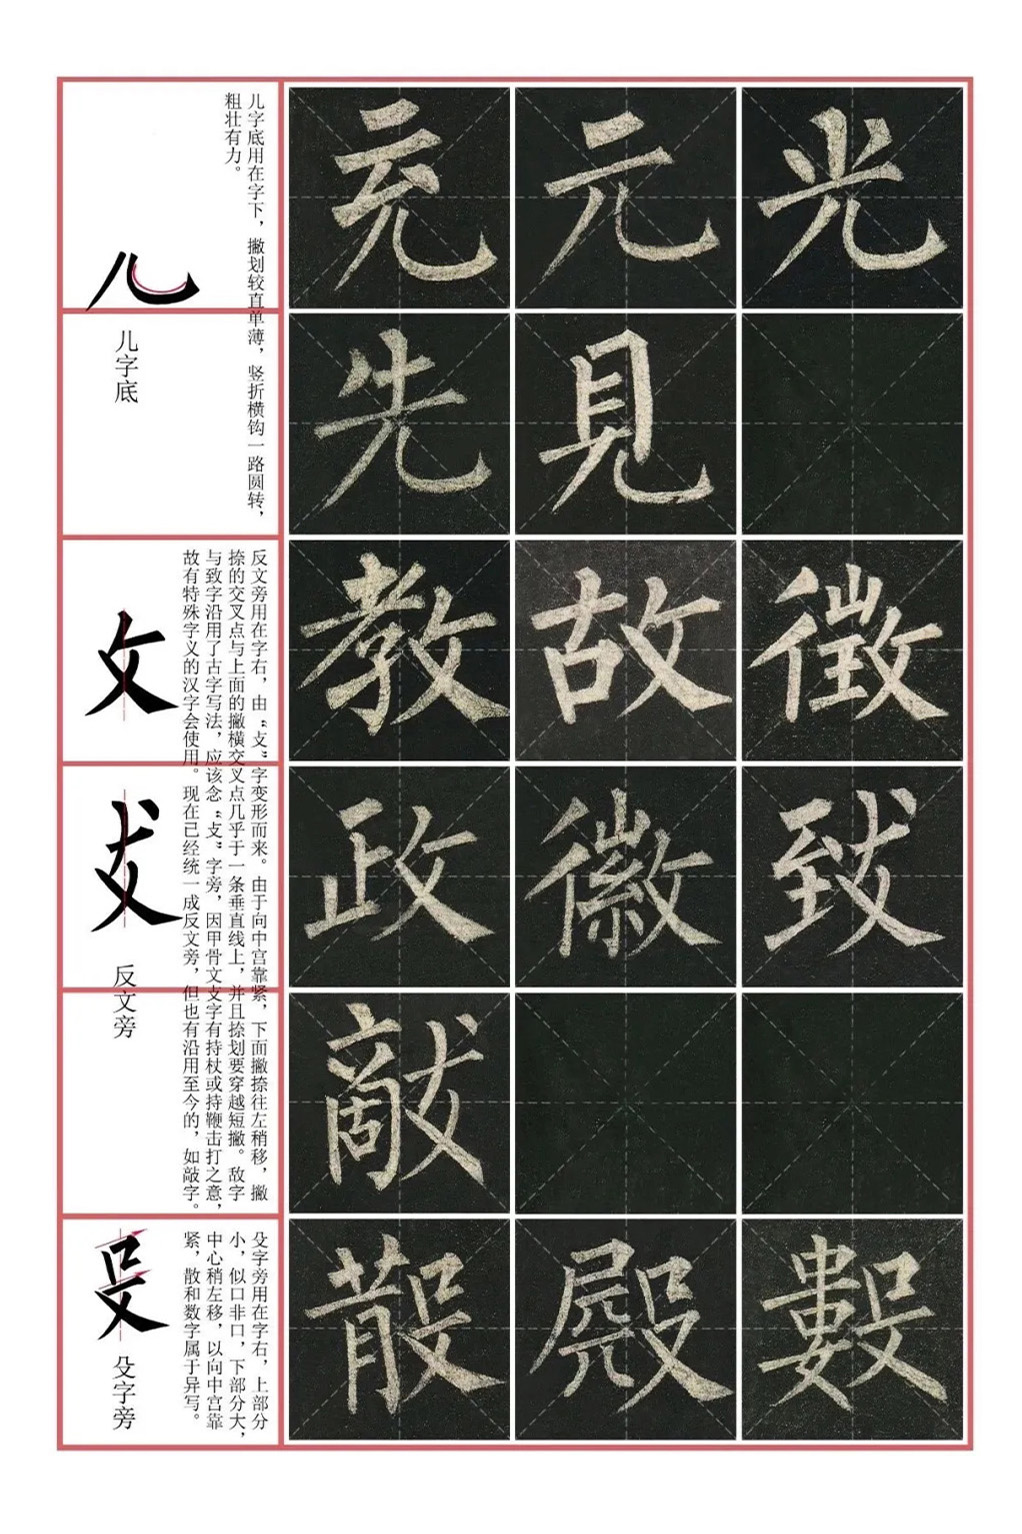 儿字底用在字下，撇划较直单薄，竖折横钩一路圆转，
粗壮有力。
儿
儿字底
充元光
先見
反文旁用在字右，由“攴”字变形而来。由于向中宫靠紧，下面撇捺往左稍移，撇
捺的交叉点与上面的撇横交叉点几乎于一条垂直线上，并且捺划要穿越短撇。敌字
与致字沿用了古字写法，应该念“攴”字旁，因甲骨文攴字有持杖或持鞭击打之意，
故有特殊字义的汉字会使用。现在已经统一成反文旁，但也有沿用至今的，如敲字。
攵
反文旁
教故徵
政徽致
敵
殳字旁用在字右，上部分
小，似口非口，下部分大，
中心稍左移，以向中宫靠
紧，散和数字属于异写。
殳
殳字旁
散殿數